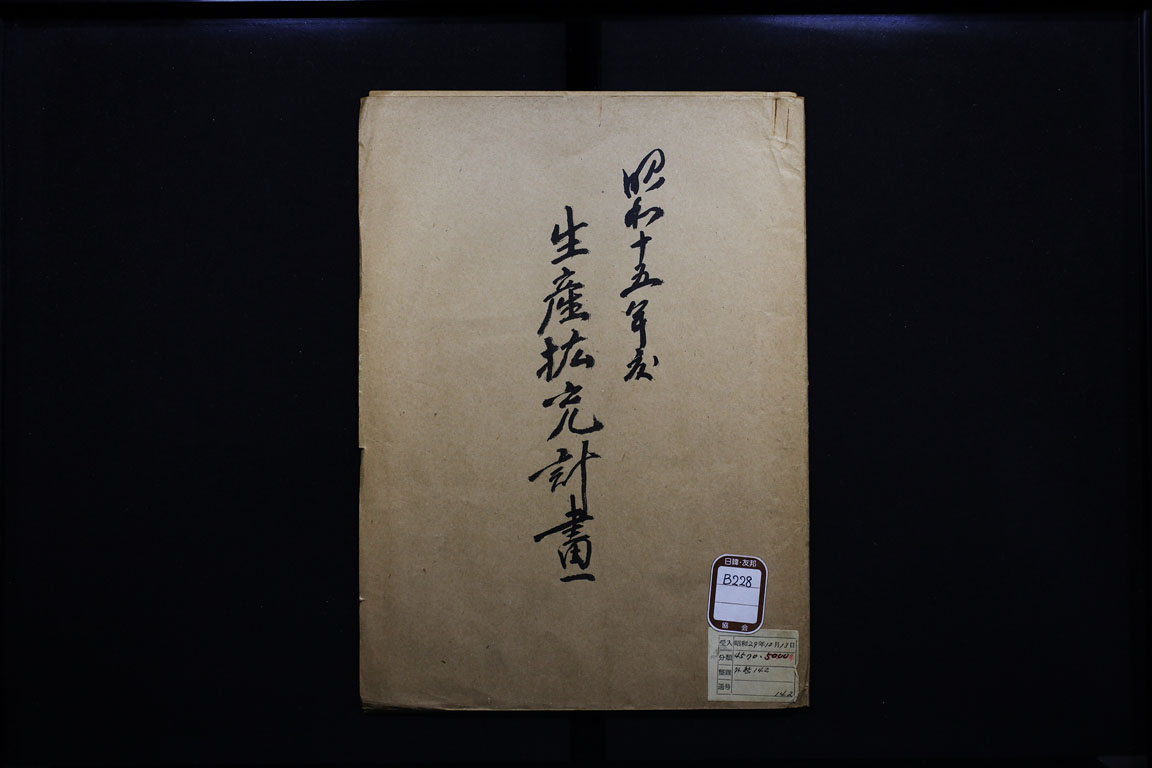 昭和十五年度
生産拡充計畫
日韓・友邦
B228
協会
受入 昭和29年10月17日
分類 4570・5000
整理 142
番号 142